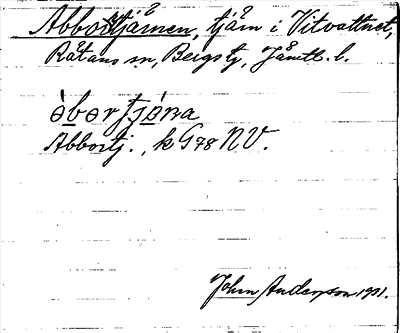 Abbortjärnen, tjärn i Vitvattnet,
Råtans sn, Bergs tj, Jämtl. l.
àbortjɔ̀na
Abbortj., k G78 NV.
John Anderson 1931.